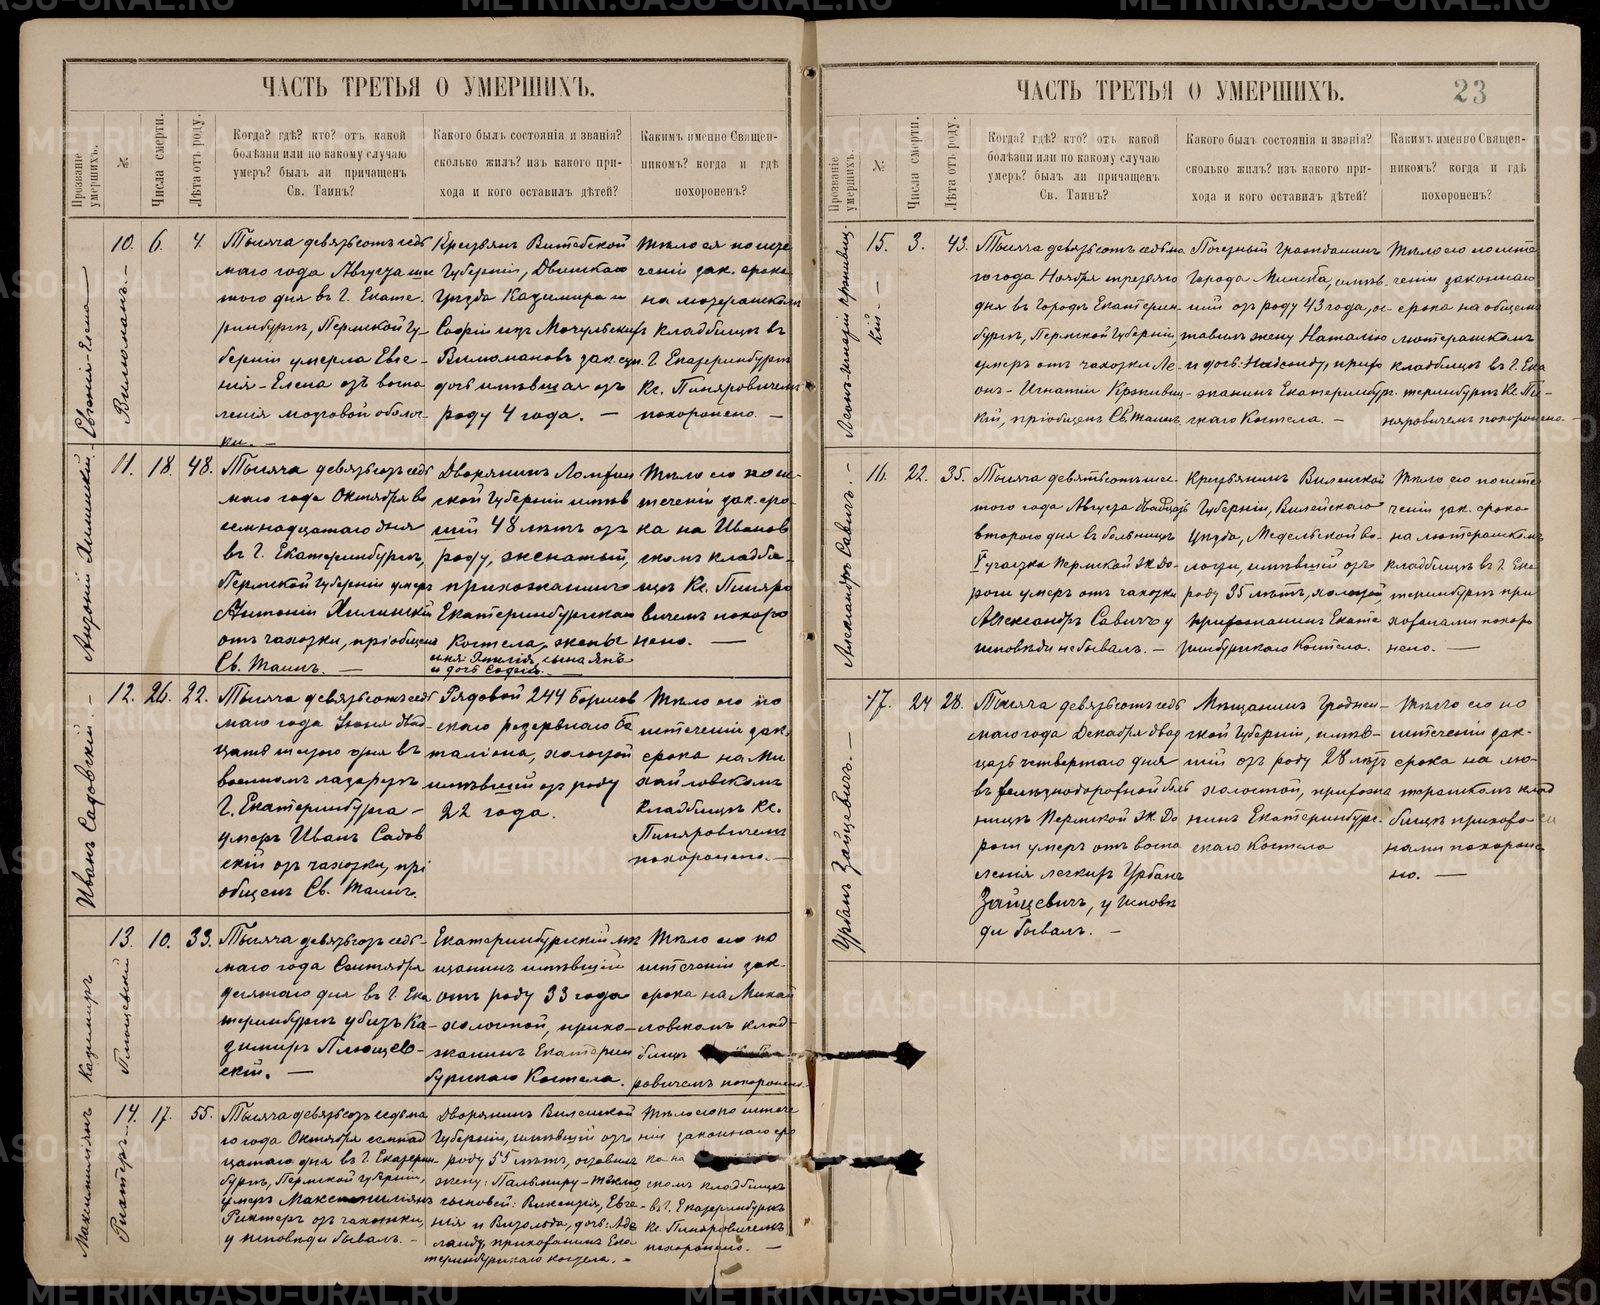 ЧАСТЬ ТРЕТЬЯ О УМЕРШИХЪ.
Прозваніе умершихъ.
№
Числа смерти.
Лѣта отъ роду.
Когда? гдѣ? кто? отъ какой
болѣзни или по какому случаю
умеръ? былъ ли причащенъ
Св. Таинъ?
Какого былъ состоянія и званія?
сколько жилъ? изъ какого при-
хода и кого оставилъ дѣтей?
Какимъ именно Священ-
никомъ? когда и гдѣ
похороненъ?
Евгенія-Елена
10. 6. 4.
Тысяча девятьсотъ седь
маго года Августа шес
того дня въ г. Екате-
ринбургѣ, Пермской Гу-
берніи умерла Евге-
нія-Елена отъ воспа
ленія мозговой оболоч-
ки. —
Крестьянъ Витебской
Губерніи, Двинскаго
уѣзда Казимира и
Софіи изъ
зак. супр.
дочь имѣвшая отъ
роду 4 года. —
Тѣло ея по исте
ченіи зак. срока
на лютеранском
кладбищѣ въ
г. Екатеринбургѣ
Кс. Пиняровичемъ
похоронено. —
Антоній Хилинскій
11. 18. 48.
Тысяча девятьсотъ седь
маго года Октября во
семнадцатаго дня
въ г. Екатеринбургѣ,
Пермской Губерніи умеръ
Антоній Хилинскій
отъ чахотки, пріобщенъ
Св. Таинъ. —
Дворянинъ Ломжин
ской Губерніи имѣв
шій 48 лѣтъ отъ
роду, женатый,
прихожанинъ
Екатеринбургскаго
Костела, жены
имя: Эмилія, сына Янъ
и дочь Софія. —
Тѣло его по ис
теченіи зак. сро
ка на Иванов
скомъ кладби-
щѣ Кс. Пиняро
вичемъ похоро
нено. —
Иванъ Садовскій. —
12. 26. 22.
Тысяча девятьсотъ седь
маго года Іюня двад
цать шестого дня въ
военномъ лазаретѣ
г. Екатеринбурга —
умеръ Иванъ Садов
скій отъ чахотки, прі
общенъ Св. Таинъ.
Рядовой 244 Борисов
скаго резервнаго ба
таліона, холостой
имѣвшій отъ роду
22 года.
Тѣло его по
истеченіи зак.
срока на Ми
хайловскомъ
кладбищѣ Кс.
Пиняровичемъ
похоронено. —
Казимиръ
13. 10. 33.
Тысяча девятьсотъ седь-
маго года Сентября
десятаго дня въ г. Ека
теринбургѣ убитъ Ка-
зимиръ Плющев-
скій. —
Екатеринбургскій мѣ
щанинъ имѣвшій
отъ роду 33 года
холостой, прихо-
жанинъ Екатерин
бургскаго Костела.
Тѣло его по
истеченіи зак.
срока на Михай
ловскомъ клад-
бищѣ
ровичемъ похоронено.
Максимиліянъ
Рихтеръ. —
14. 17. 55.
Тысяча девятьсотъ седьма
го года Октября семнад
цатаго дня въ г. Екатерин-
бургѣ, Пермской губерніи,
умеръ Максимиліянъ
Рихтеръ отъ чахотки,
у исповѣди бывалъ. —
Дворянинъ Виленской
Губерніи, имѣвшій отъ
роду 55 лѣтъ, оставилъ
жену: Пальмиру-Теклю,
сыновей: Викентія, Евге-
нія и Витольда, дочь: Аде
лаиду, прихожанинъ Ека
теринбургскаго костела. —
Тѣло его по истече
ніи законнаго сро
ка на
скомъ кладбищѣ
въ г. Екатеринбургѣ
Кс. Пиняровичемъ
похоронено. —
ЧАСТЬ ТРЕТЬЯ О УМЕРШИХЪ.
23
Прозваніе умершихъ.
№
Числа смерти.
Лѣта отъ роду.
Когда? гдѣ? кто? отъ какой
болѣзни или по какому случаю
умеръ? былъ ли причащенъ
Св. Таинъ?
Какого былъ состоянія и званія?
сколько жилъ? изъ какого при-
хода и кого оставилъ дѣтей?
Какимъ именно Священ-
никомъ? когда и гдѣ
похороненъ?
15. 3. 43.
Тысяча девятьсотъ седьма
го года Ноября третьяго
дня въ городѣ Екатерин-
бургѣ, Пермской Губерніи,
умеръ отъ чахотки Ле-
онъ-Игнатій Крживиц-
кій, пріобщенъ Св. Таинъ.
Почетный Гражданинъ
города Минска, имѣв-
шій отъ роду 43 года, ос-
тавилъ жену Наталію
и дочь: Надежду, прихо
жанинъ Екатеринбург-
скаго Костела. —
Тѣло его по исте
ченіи законнаго
срока на общемъ
лютеранскомъ
кладбищѣ въ г. Ека
теринбургѣ Кс. Пи-
няровичемъ похоронено. —
Александръ Савичъ. —
16. 22. 35.
Тысяча девятьсотъ шес
того года Августа двадцать
второго дня въ больницѣ
V участка Пермской Ж. До-
роги умеръ отъ чахотки
Александръ Савичъ у
исповѣди не бывалъ. —
Крестьянинъ Виленской
Губерніи, Вилейскаго
уѣзда, Мядельской во-
лости, имѣвшій отъ
роду 35 лѣтъ, холостой,
прихожанинъ Екате
ринбургскаго Костела.
Тѣло его по исте
ченіи зак. срока
на лютеранском
кладбищѣ въ г. Ека
теринбургѣ при
хожанами похоро
нено. —
Урбанъ Зайцевичъ. —
17. 24 28.
Тысяча девятьсотъ седь
маго года Декабря двад
цать четвертаго дня
въ желѣзнодорожной боль
ницѣ Пермской Ж. До
роги умеръ отъ воспа
ленія легкихъ Урбанъ
Зайцевичъ, у исповѣ
ди бывалъ. —
Мѣщанинъ Гроднен-
ской Губерніи, имѣв-
шій отъ роду 28 лѣтъ
холостой, прихожа
нинъ Екатеринбург-
скаго Костела
Тѣло его по
истеченіи зак.
срока на лю-
теранскомъ клад
бищѣ прихожа
нами похороне
но. —
METRIKI.GASO-URAL.RU